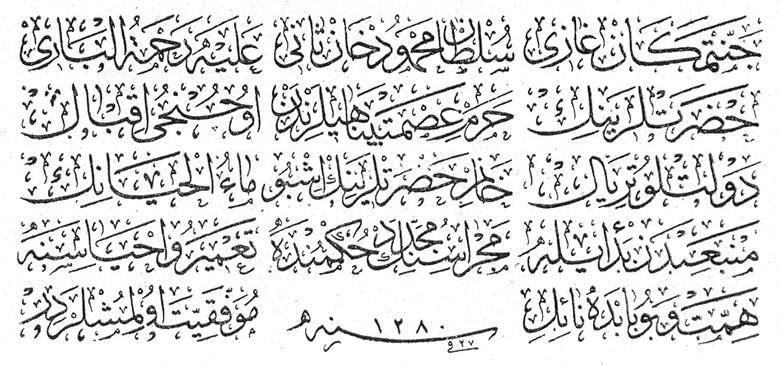 جنتمكان غازى سلطان محمود خان ثانى عليه رحمة البارى
حضرتلرينك حرم عصمتپناهيلرندن اوچنجى اقبال
دولتلو پريال خانم حضرتلرينك اشبو ماء الحياتك
منبعندن بدأ ايله مجراسنك مجدد حكمنده تعمير و احياسنه
همت و بو بابده نائل موفقيت اولمشلردر
سنه ١٢٨٠